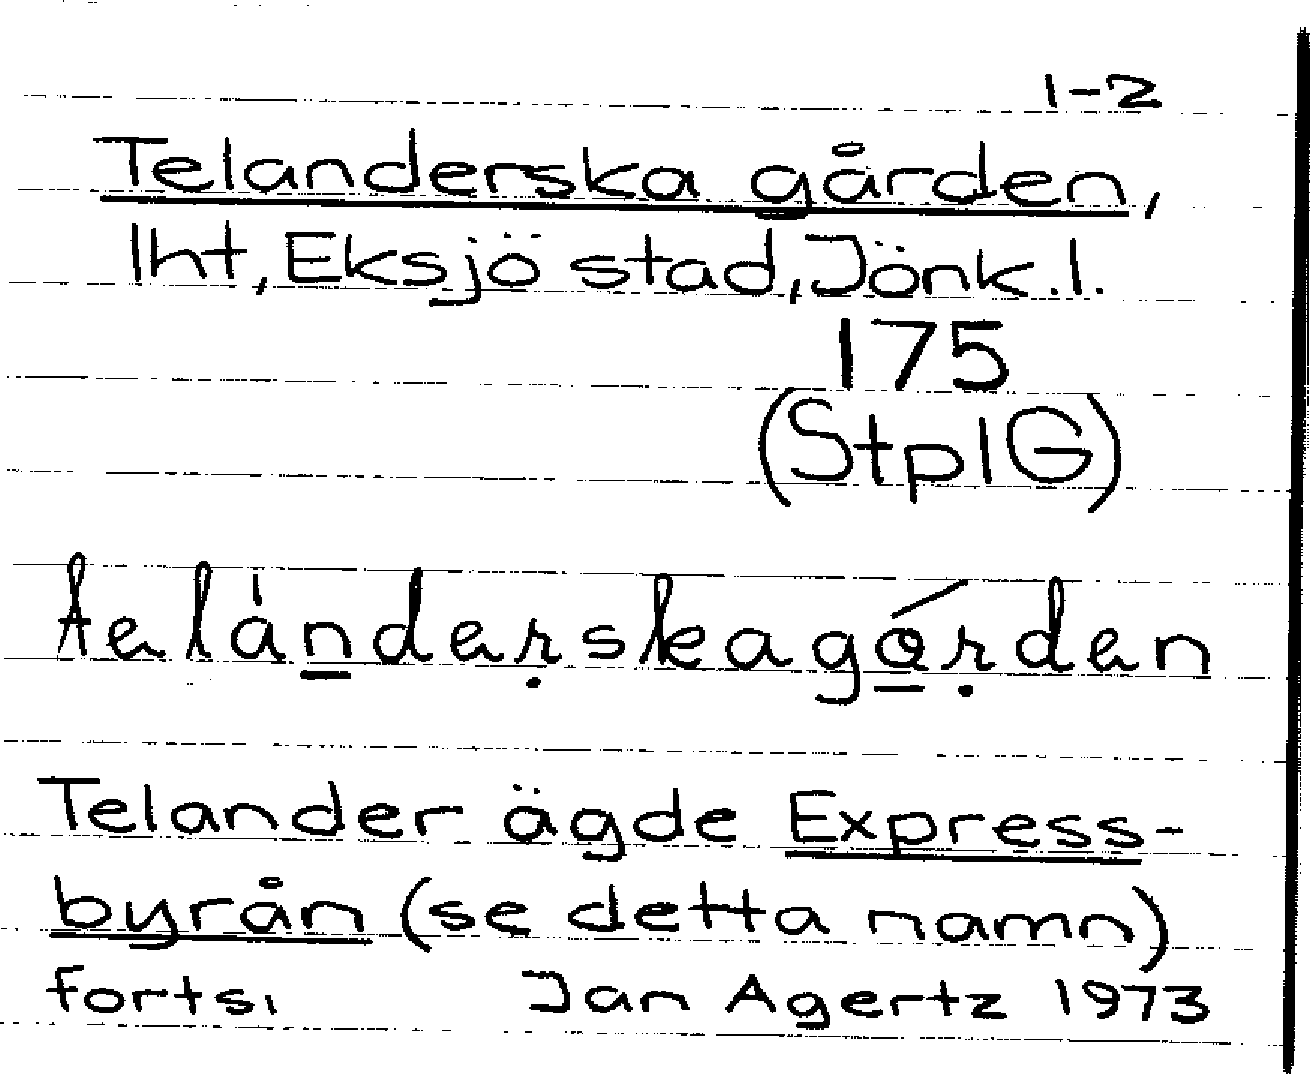 1-2
Telanderska gården,
lht, Eksjö stad, Jönk.l.
175
(StplG)
telánderskagórden
Telander ägde Express-
byrån (se detta namn)
forts. Jan Agertz 1973